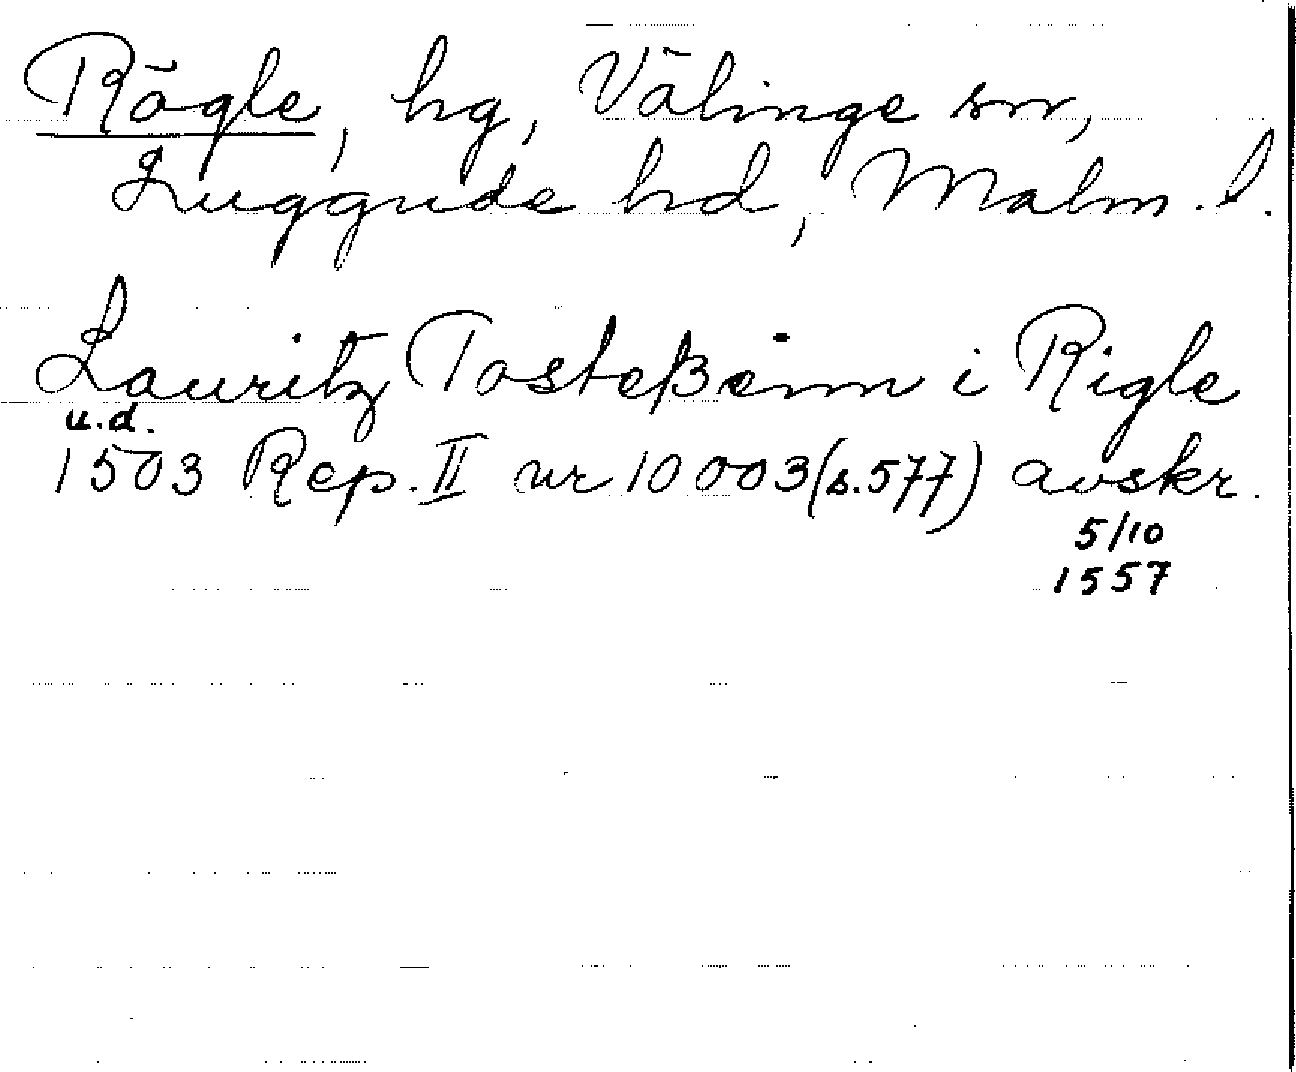 Rögle, hg, Välinge sn,
Luggude hd, Malm. l.
Lauritz Tosteßønn i Rigle
u.d.
1503 Rep. II nr 10003 (s.577) avskr.
5/10
1557